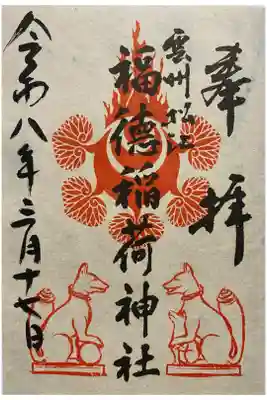 奉拝
雲州松江
福德稲荷神社
令和八年三月十七日